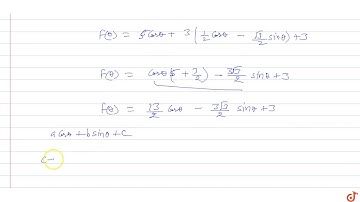 f(θ) = 5cosθ + 3 (1/2 cosθ − √3/2 sinθ) + 3
f(θ) = cosθ (5 + 3/2) − 3√3/2 sinθ + 3
f(θ) = 13/2 cosθ − 3√3/2 sinθ + 3
a cosθ + b sinθ + c
c −